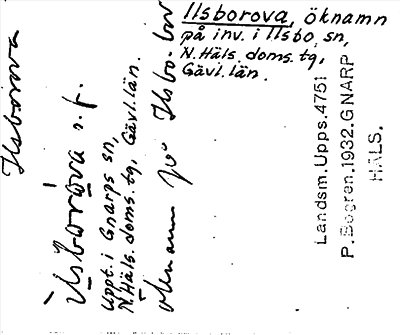 Ilsborova, öknamn
på inv. i Ilsbo, sn,
N. Häls. doms. tg,
Gävl. län.
Ilsborova
Ìlsboròva s. f.
Uppt. i Gnarps sn,
N. Häls. doms. tg, Gävl. län.
öknamn på Ilsbo-bor
Landsm. Upps. 4751
P. Bogren. 1932. GNARP
HÄLS.